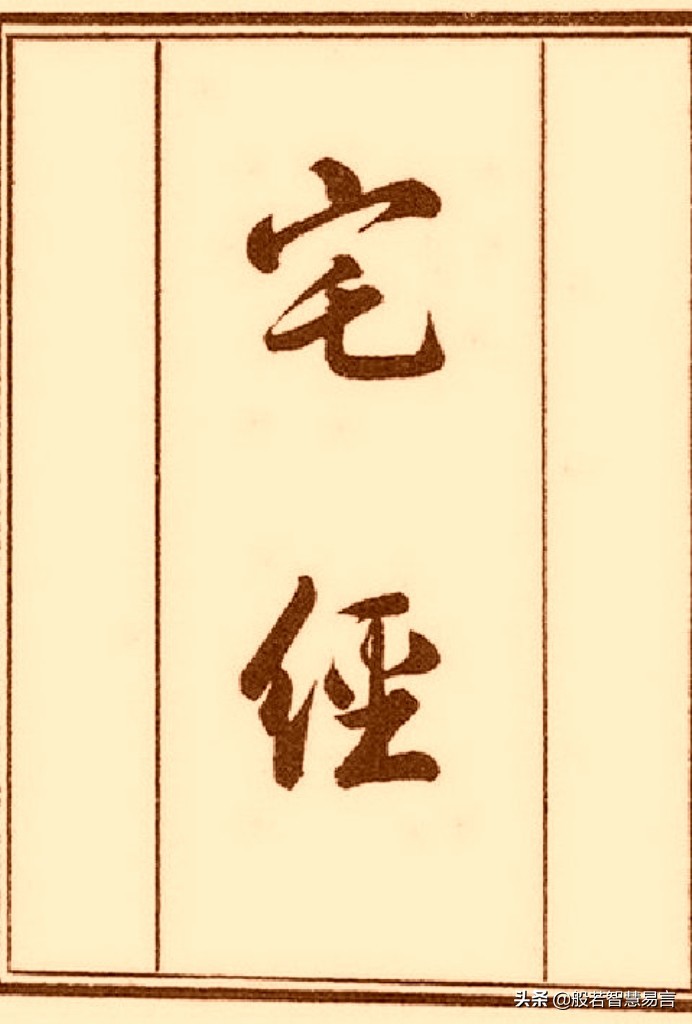 宅經
头条 @般若智慧易言